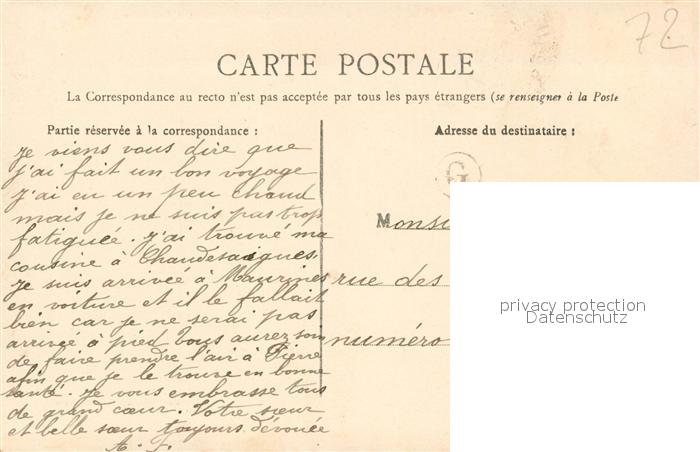 72
CARTE POSTALE
La Correspondance au recto n'est pas acceptée par tous les pays étrangers (se renseigner à la Poste
Partie réservée à la correspondance :
Je viens vous dire que
j'ai fait un bon voyage
j'ai eu un peu chaud
mais je ne suis pas trop
fatiguée. j'ai trouvé ma
cousine à Chaudesaigues.
je suis arrivée à Maurines
en voiture et il le fallait
bien car je ne serai pas
arrivée à pied vous aurez soin
de faire prendre l'air à Pierre
afin que je le trouve en bonne
santé. Je vous embrasse tous
de grand cœur. Votre sœur
et belle sœur toujours dévouée
Adresse du destinataire :
G
Monsi
rue des
numéro
privacy protection
Datenschutz